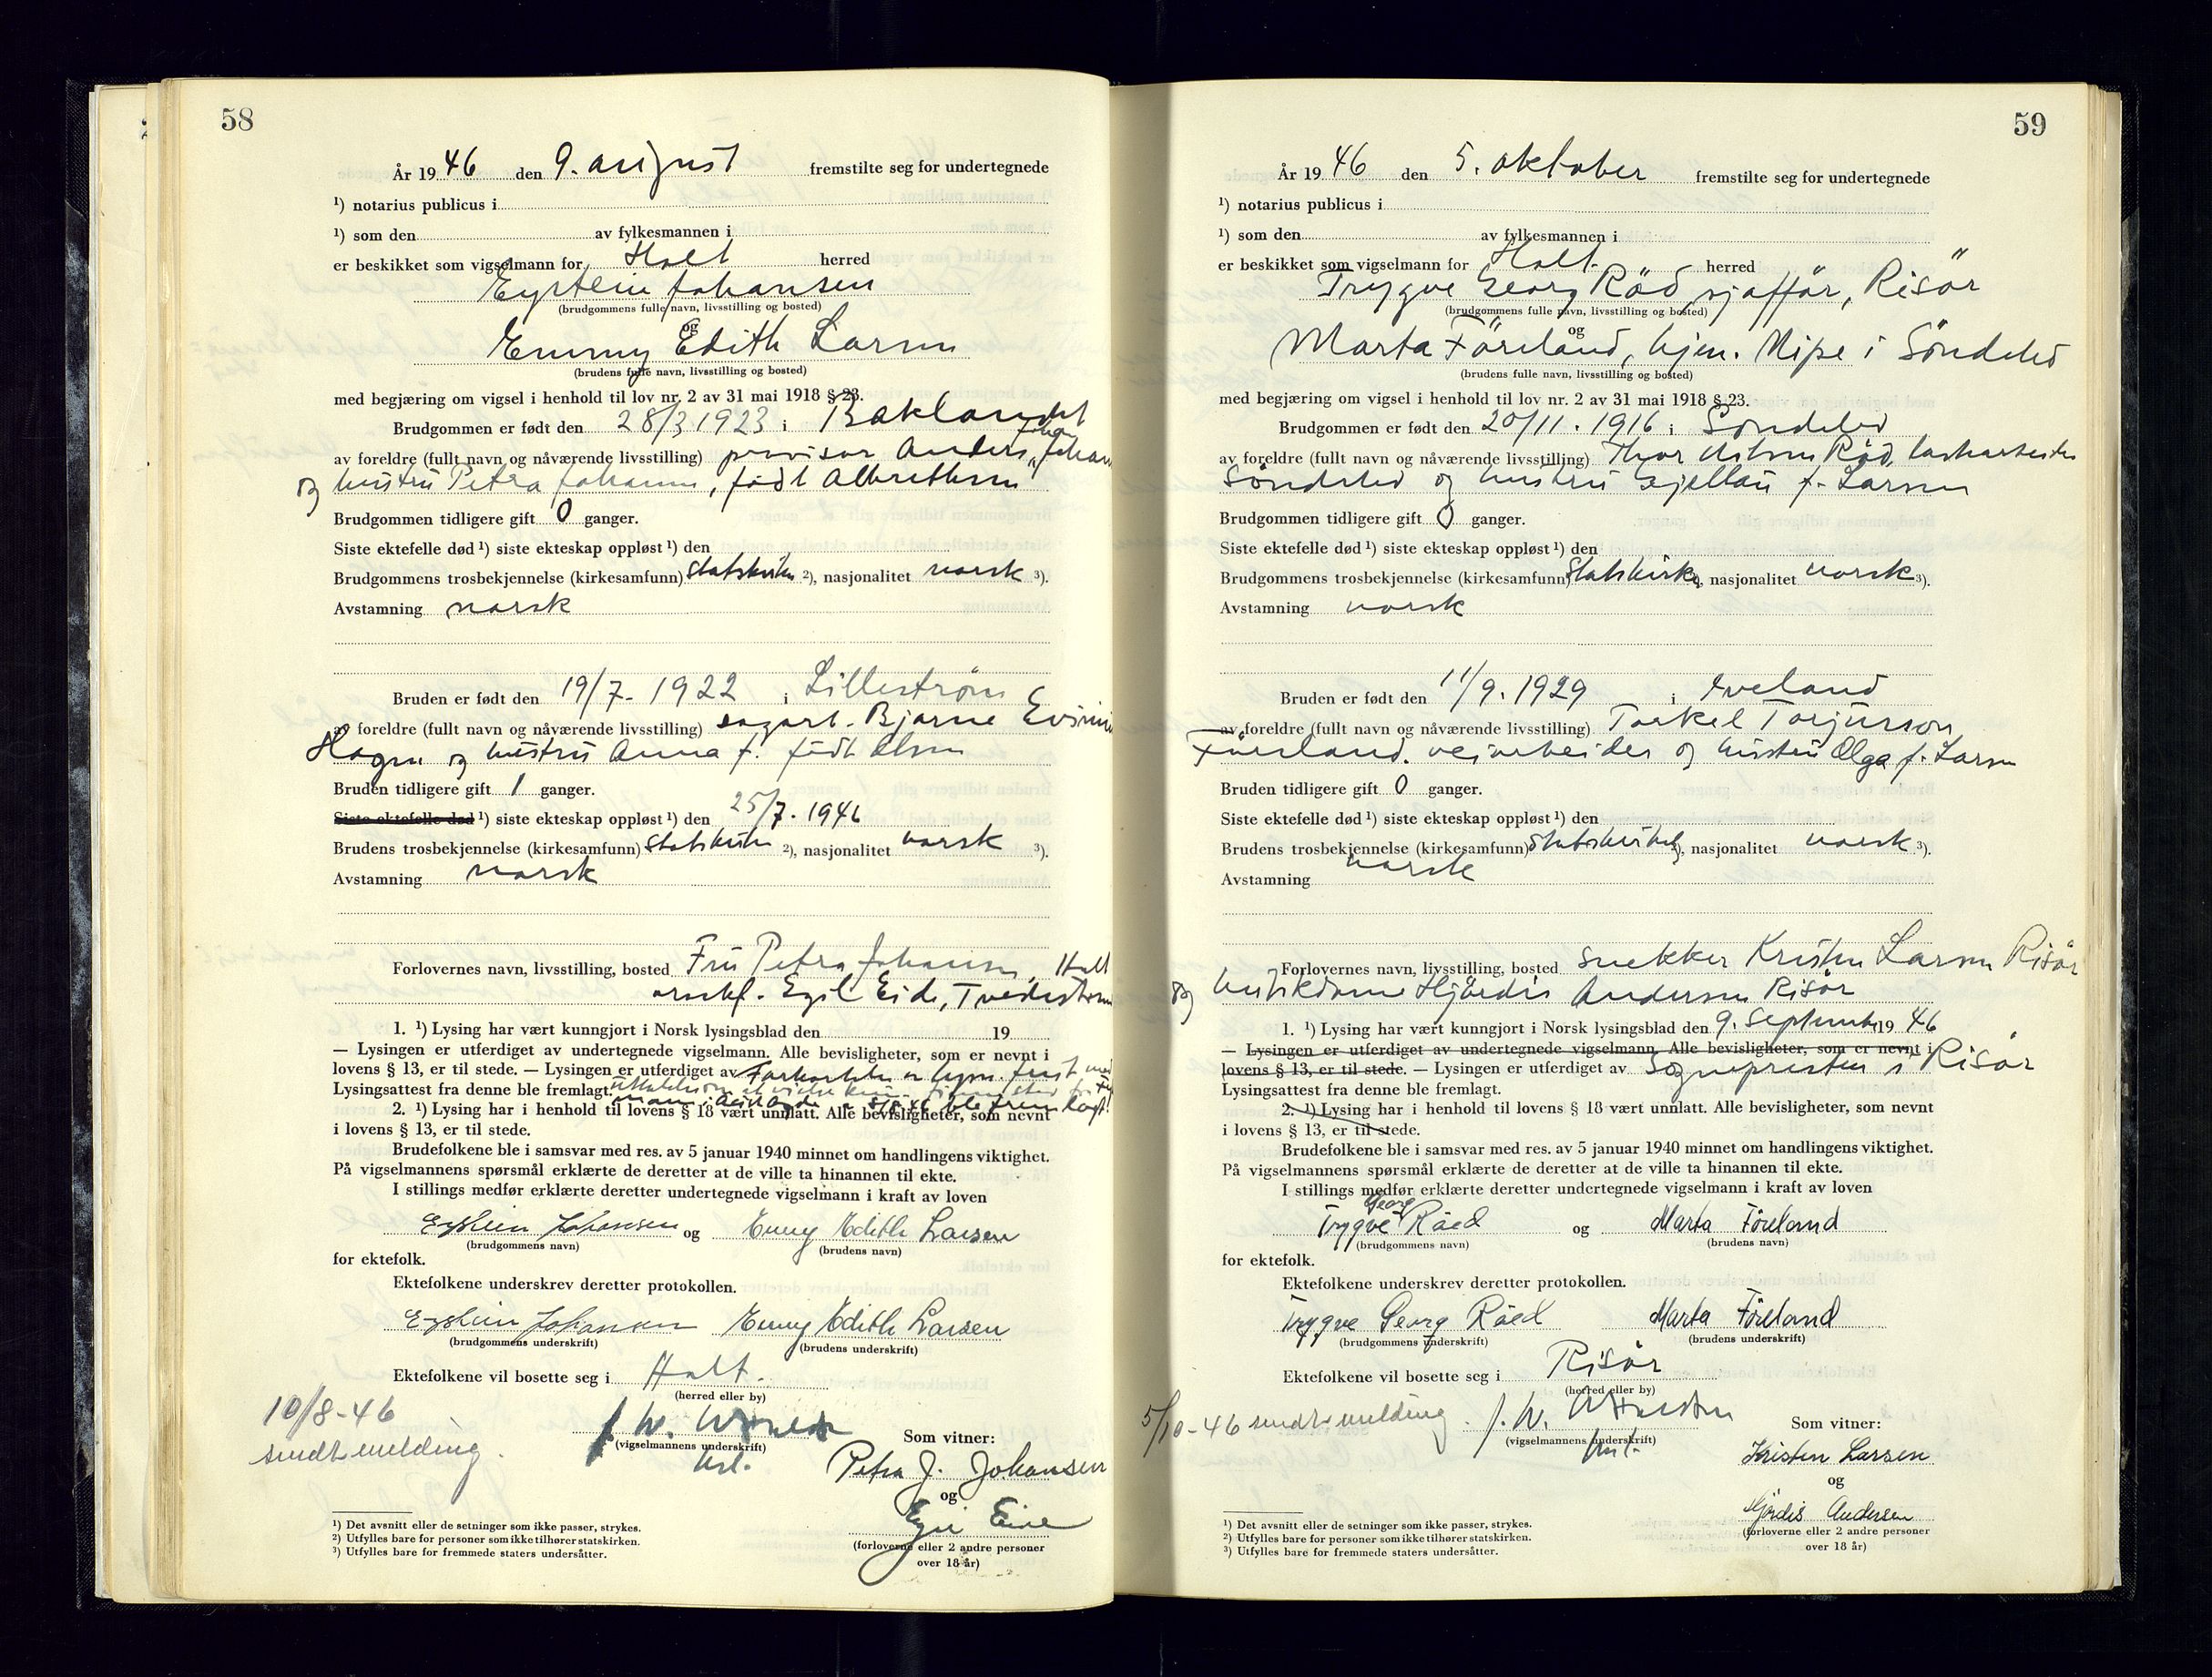 58
År 1946 den 9. august fremstilte seg for undertegnede
¹) notarius publicus i
¹) som den av fylkesmannen i
er beskikket som vigselmann for Holt herred
Eystein Johansen
(brudgommens fulle navn, livsstilling og bosted)
og
Emmy Edith Larsen
(brudens fulle navn, livsstilling og bosted)
med begjæring om vigsel i henhold til lov nr. 2 av 31 mai 1918 § 23.
Brudgommen er født den 28/3 1923 i Baklandet
av foreldre (fullt navn og nåværende livsstilling) provisor Anders
og hustru Petra Johansen, født Albrethsen
Brudgommen tidligere gift 0 ganger.
Siste ektefelle død ¹) siste ekteskap oppløst ¹) den
Brudgommens trosbekjennelse (kirkesamfunn) Statskirken ²), nasjonalitet norsk ³).
Avstamning norsk
Bruden er født den 19/7. 1922 i Lilleström
av foreldre (fullt navn og nåværende livsstilling) sagarb. Bjarne
Hagen og hustru Anna f. født Olsen
Bruden tidligere gift 1 ganger.
Siste ektefelle død ¹) siste ekteskap oppløst ¹) den 25/7. 1946
Brudens trosbekjennelse (kirkesamfunn) Statskirken ²), nasjonalitet norsk ³).
Avstamning norsk
Forlovernes navn, livsstilling, bosted Fru Petra Johansen, Holt
Egil Eide, Tvedestrand
1. ¹) Lysing har vært kunngjort i Norsk lysingsblad den 19
— Lysingen er utferdiget av undertegnede vigselmann. Alle bevisligheter, som er nevnt i
lovens § 13, er til stede. — Lysingen er utferdiget av
Lysingsattest fra denne ble fremlagt.
2. ¹) Lysing har i henhold til lovens § 18 vært unnlatt. Alle bevisligheter, som nevnt
i lovens § 13, er til stede.
Brudefolkene ble i samsvar med res. av 5 januar 1940 minnet om handlingens viktighet.
På vigselmannens spørsmål erklærte de deretter at de ville ta hinannen til ekte.
I stillings medfør erklærte deretter undertegnede vigselmann i kraft av loven
Eystein Johansen og Emmy Edith Larsen
(brudgommens navn) (brudens navn)
for ektefolk.
Ektefolkene underskrev deretter protokollen.
Eystein Johansen Emmy Edith Larsen
(brudgommens underskrift) (brudens underskrift)
Ektefolkene vil bosette seg i Holt.
(herred eller by)
10/8-46
sendt melding.
(vigselmannens underskrift)
Som vitner:
Petra J. Johansen
og
Egil Eide
(forloverne eller 2 andre personer
over 18 år)
¹) Det avsnitt eller de setninger som ikke passer, strykes.
²) Utfylles bare for personer som ikke tilhører statskirken.
³) Utfylles bare for fremmede staters undersåtter.
59
År 1946 den 5. oktober fremstilte seg for undertegnede
¹) notarius publicus i
¹) som den av fylkesmannen i
er beskikket som vigselmann for Holt. herred
Trygve Georg Röd sjafför, Risör
(brudgommens fulle navn, livsstilling og bosted)
og
Marta Föreland, hjem. Nipe i Söndeled
(brudens fulle navn, livsstilling og bosted)
med begjæring om vigsel i henhold til lov nr. 2 av 31 mai 1918 § 23.
Brudgommen er født den 20/11. 1916 i Söndeled
av foreldre (fullt navn og nåværende livsstilling) Thor Röd,
Söndeled og hustru f. Larsen
Brudgommen tidligere gift 0 ganger.
Siste ektefelle død ¹) siste ekteskap oppløst ¹) den
Brudgommens trosbekjennelse (kirkesamfunn) Statskirken, nasjonalitet norsk ³).
Avstamning norsk
Bruden er født den 11/9. 1929 i Iveland
av foreldre (fullt navn og nåværende livsstilling) Torkel Torjusson
Föreland. veiarbeider og hustru Olga f. Larsen
Bruden tidligere gift 0 ganger.
Siste ektefelle død ¹) siste ekteskap oppløst ¹) den
Brudens trosbekjennelse (kirkesamfunn) Statskirken ²), nasjonalitet norsk ³).
Avstamning norsk
Forlovernes navn, livsstilling, bosted snekker Kristen Larsen Risör
og Hjördis Andersen Risör
1. ¹) Lysing har vært kunngjort i Norsk lysingsblad den 9. september 1946
— Lysingen er utferdiget av undertegnede vigselmann. Alle bevisligheter, som er nevnt i
lovens § 13, er til stede. — Lysingen er utferdiget av sognepresten i Risör
Lysingsattest fra denne ble fremlagt.
2. ¹) Lysing har i henhold til lovens § 18 vært unnlatt. Alle bevisligheter, som nevnt
i lovens § 13, er til stede.
Brudefolkene ble i samsvar med res. av 5 januar 1940 minnet om handlingens viktighet.
På vigselmannens spørsmål erklærte de deretter at de ville ta hinannen til ekte.
I stillings medfør erklærte deretter undertegnede vigselmann i kraft av loven
Trygve Georg Röed og Marta Föreland
(brudgommens navn) (brudens navn)
for ektefolk.
Ektefolkene underskrev deretter protokollen.
Trygve Georg Röed Marta Föreland
(brudgommens underskrift) (brudens underskrift)
Ektefolkene vil bosette seg i Risör
(herred eller by)
5/10-46 sendt melding.
(vigselmannens underskrift)
Som vitner:
Kristen Larsen
og
Hjördis Andersen
(forloverne eller 2 andre personer
over 18 år)
¹) Det avsnitt eller de setninger som ikke passer, strykes.
²) Utfylles bare for personer som ikke tilhører statskirken.
³) Utfylles bare for fremmede staters undersåtter.